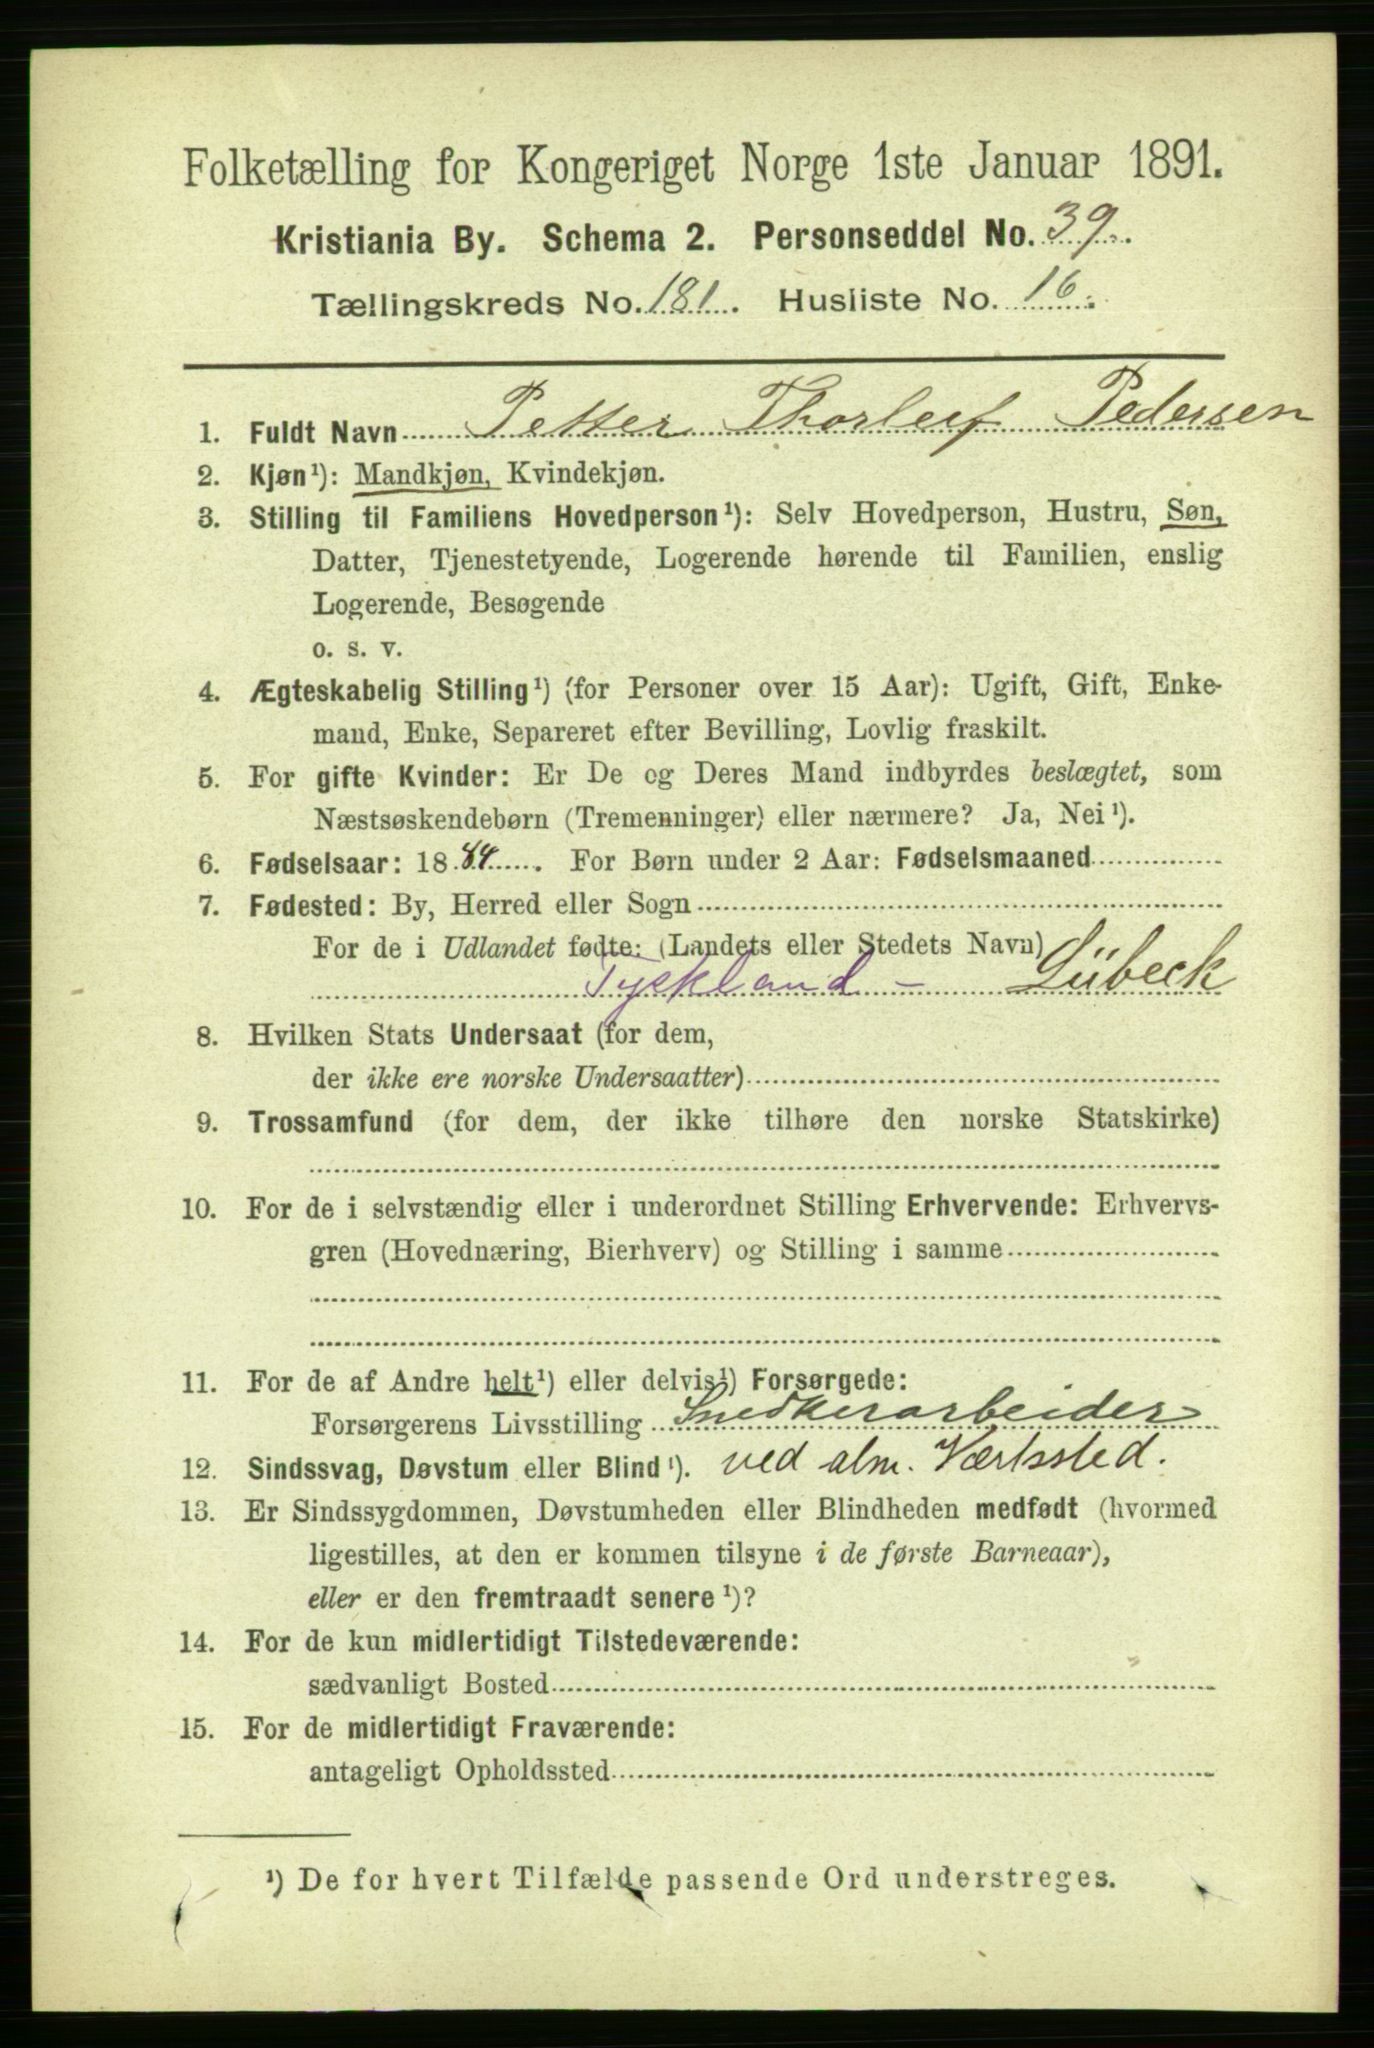 Folketælling for Kongeriget Norge 1ste Januar 1891.
Kristiania By. Schema 2. Personseddel No. 39.
Tællingskreds No. 181. Husliste No. 16.
1. Fuldt Navn Petter Thorleif Pedersen
2. Kjøn¹): Mandkjøn, Kvindekjøn.
3. Stilling til Familiens Hovedperson¹): Selv Hovedperson, Hustru, Søn,
Datter, Tjenestetyende, Logerende hørende til Familien, enslig
Logerende, Besøgende
o. s. v.
4. Ægteskabelig Stilling¹) (for Personer over 15 Aar): Ugift, Gift, Enke-
mand, Enke, Separeret efter Bevilling, Lovlig fraskilt.
5. For gifte Kvinder: Er De og Deres Mand indbyrdes beslægtet, som
Næstsøskendebørn (Tremenninger) eller nærmere? Ja, Nei¹).
6. Fødselsaar: 1884. For Børn under 2 Aar: Fødselsmaaned
7. Fødested: By, Herred eller Sogn
For de i Udlandet fødte: (Landets eller Stedets Navn)
Tyskland - Lübeck
8. Hvilken Stats Undersaat (for dem,
der ikke ere norske Undersaatter)
9. Trossamfund (for dem, der ikke tilhøre den norske Statskirke)
10. For de i selvstændig eller i underordnet Stilling Erhvervende: Erhvervs-
gren (Hovednæring, Bierhverv) og Stilling i samme
11. For de af Andre helt¹) eller delvis¹) Forsørgede:
Forsørgerens Livsstilling Snedkerarbeider
12. Sindssvag, Døvstum eller Blind¹). ved alm. Værksted.
13. Er Sindssygdommen, Døvstumheden eller Blindheden medfødt (hvormed
ligestilles, at den er kommen tilsyne i de første Barneaar),
eller er den fremtraadt senere¹)?
14. For de kun midlertidigt Tilstedeværende:
sædvanligt Bosted
15. For de midlertidigt Fraværende:
antageligt Opholdssted
¹) De for hvert Tilfælde passende Ord understreges.